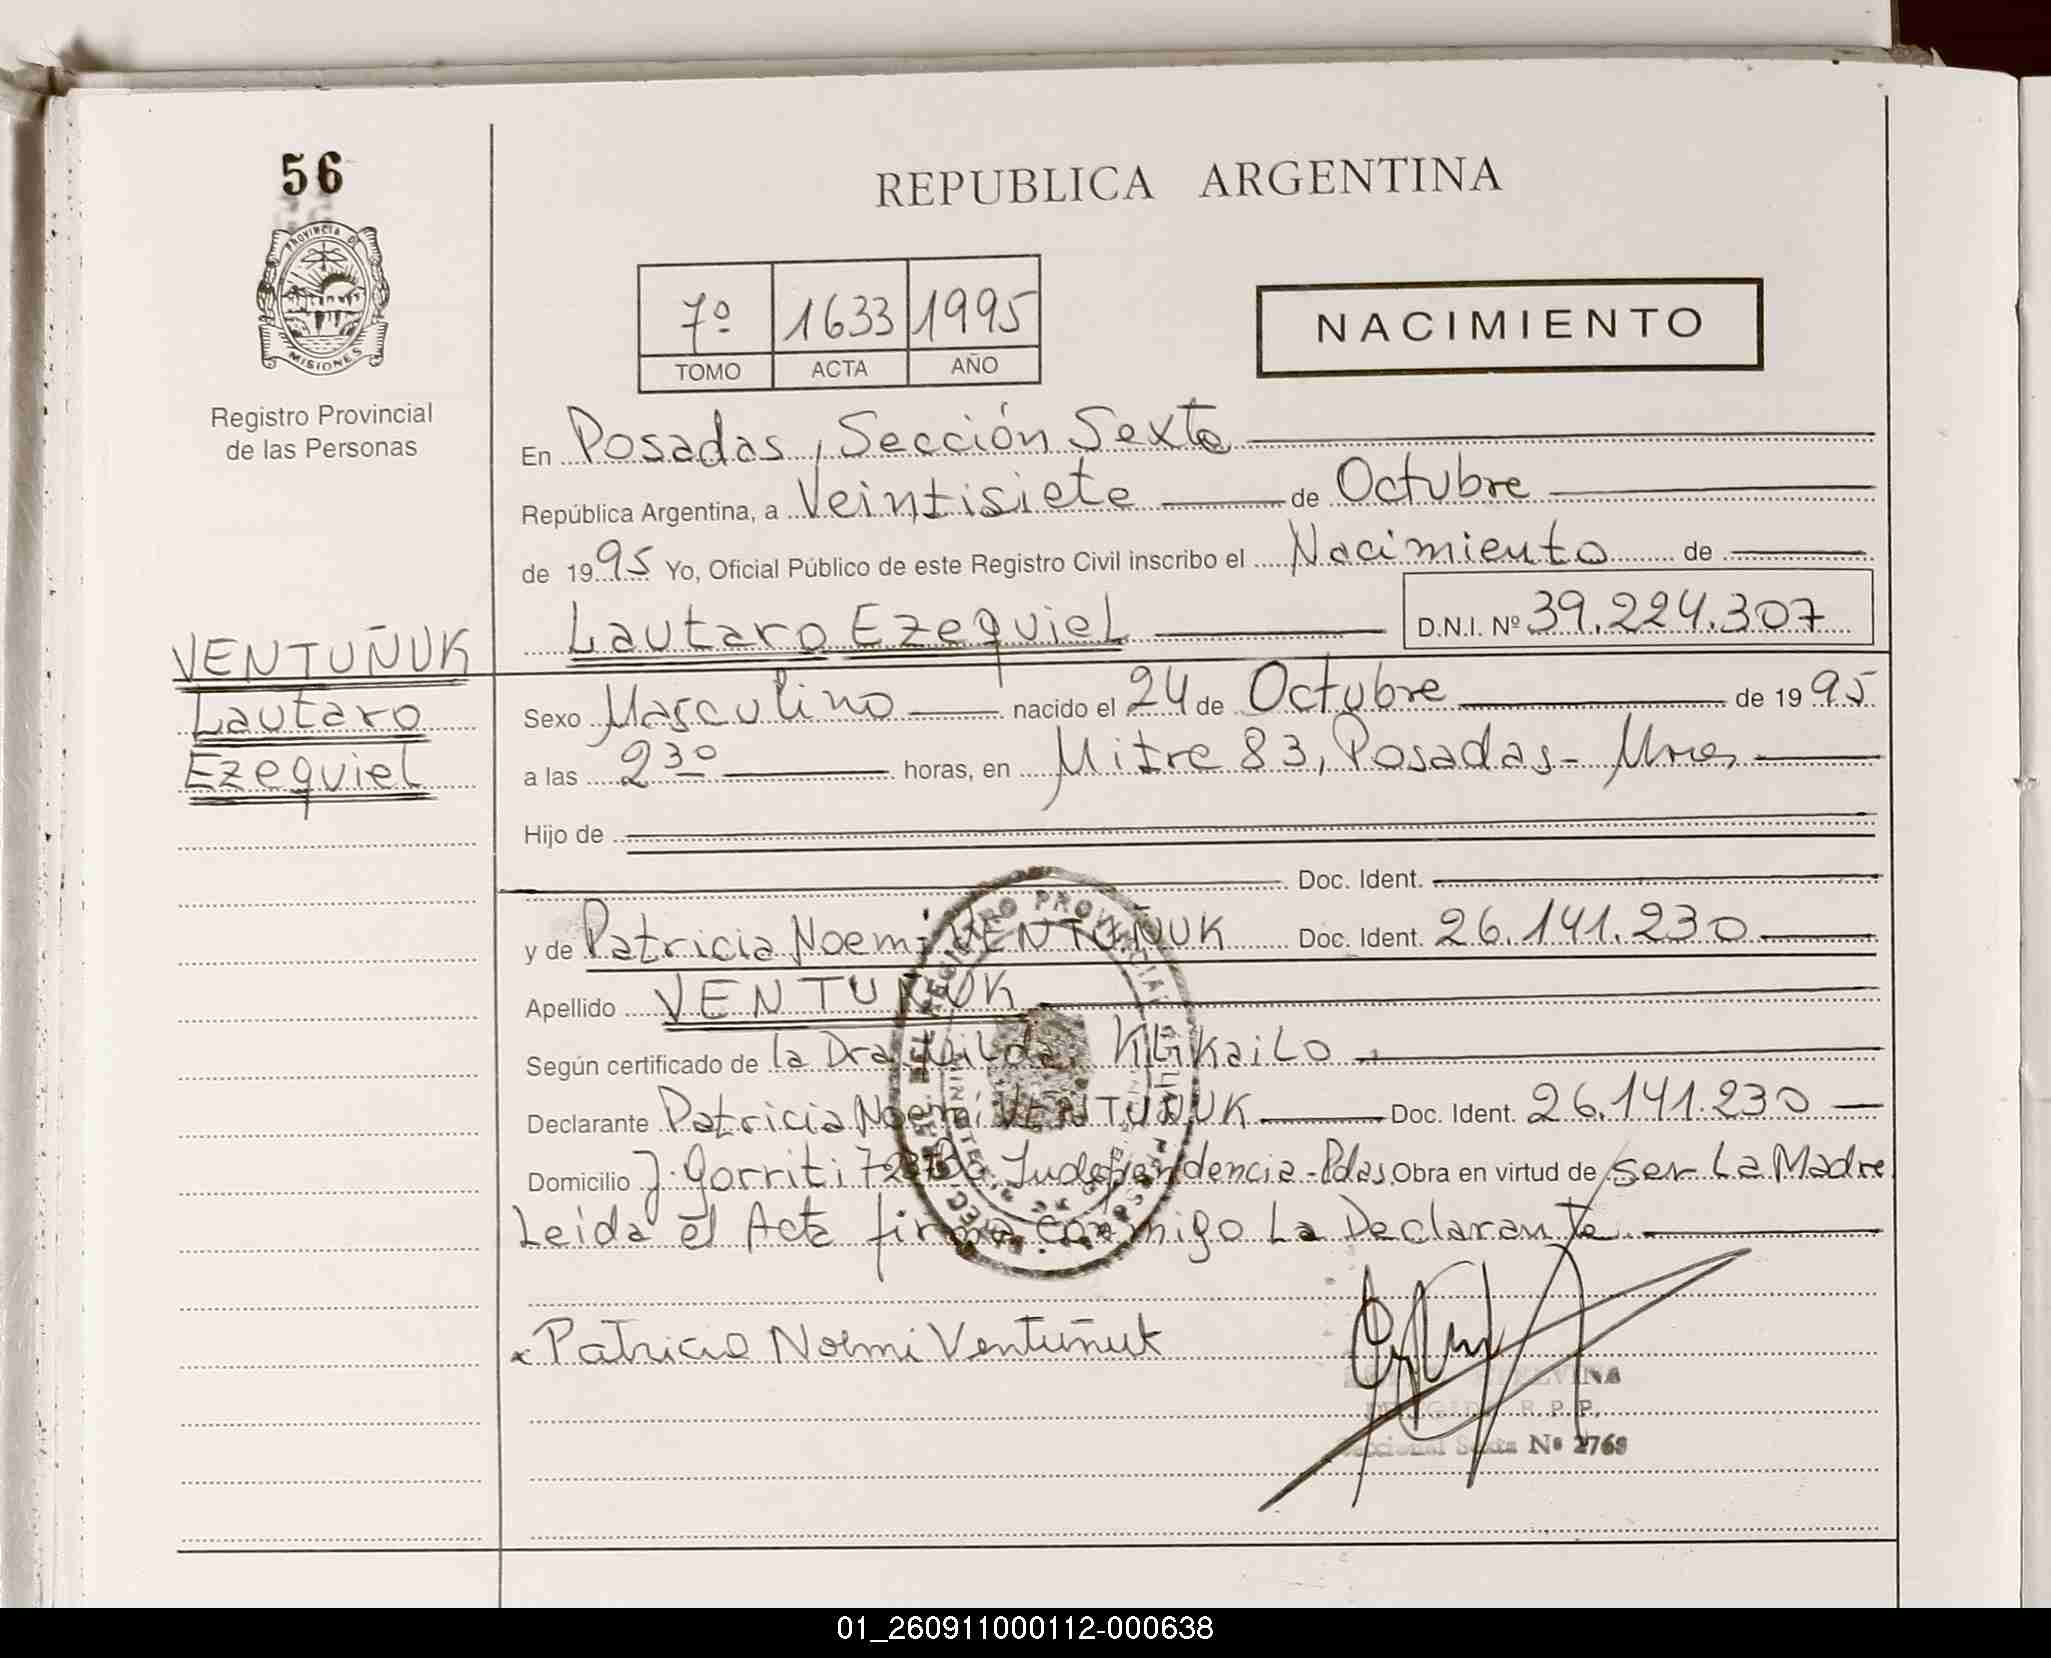 56
PROVINCIA DE
MISIONES
Registro Provincial
de las Personas
REPUBLICA ARGENTINA
7º 1633 1995
TOMO ACTA AÑO
NACIMIENTO
En Posadas, Sección Sexta
República Argentina, a Veintisiete de Octubre
de 1995 Yo, Oficial Público de este Registro Civil inscribo el Nacimiento de
Lautaro Ezequiel D.N.I. Nº 39.224.307
VENTUÑUK
Lautaro
Ezequiel
Sexo Masculino nacido el 24 de Octubre de 1995
a las 230 horas, en Mitre 83, Posadas - Mnes
Hijo de
Doc. Ident.
y de Patricia Noemi VENTUÑUK Doc. Ident. 26.141.230
Apellido VENTUÑUK
Según certificado de la Dra
Declarante Patricia Noemí VENTUÑUK Doc. Ident. 26.141.230
Domicilio J. Gorriti Independencia - Pdas. Obra en virtud de ser La Madre
Leida el Acta firma conmigo La Declarante.
x Patricia Noemi Ventuñuk
R. P. P.
Seccional Sexta Nº 2768
01_260911000112-000638